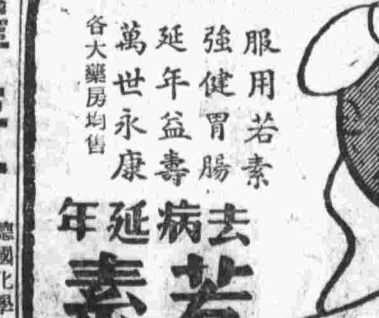 服用若素
強健胃腸
延年益壽
萬世永康
各大藥房均售
去病延年
若素
德國化學